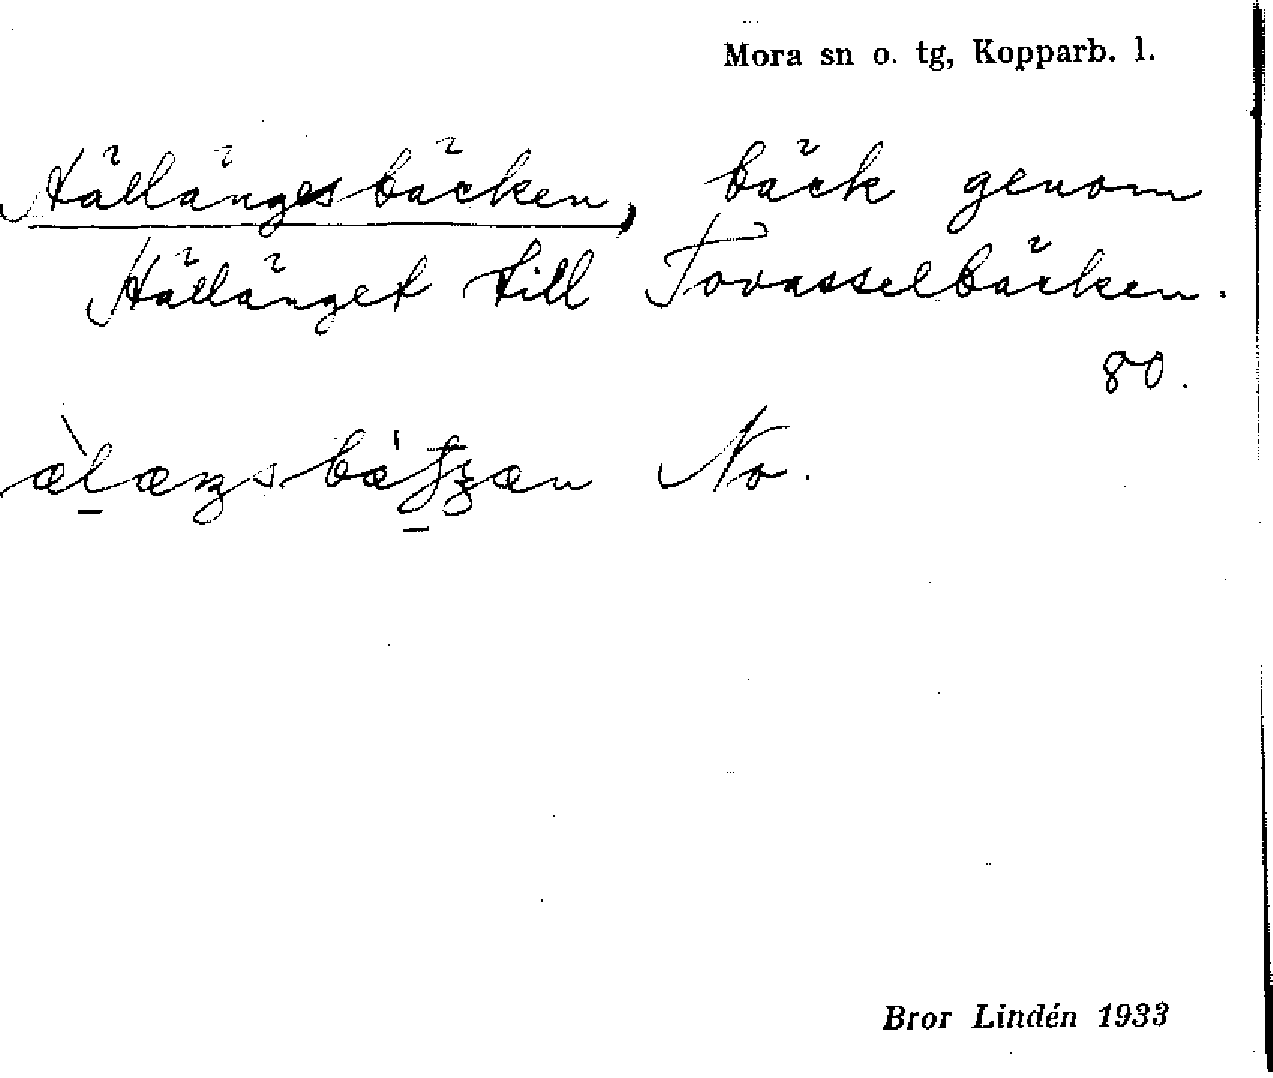 Mora sn o. tg, Kopparb. l.
Hällängesbäcken, bäck genom
Hällänget till Tovasselbäcken.
80.
No.
Bror Lindén 1933